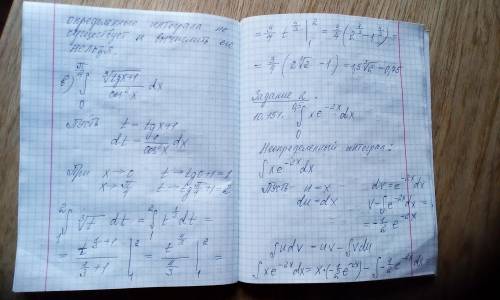 определенные интеграла не
существует и вычислить его
нельзя.
в) ∫₀^{π/4} ∛(tgx+1)/cos²x dx
Пусть t = tgx+1
dt = dx/cos²x dx
При x→0 t→tg0+1=1
x→π/4 t→tgπ/4+1=2
∫₁² ∛t dt = ∫₁² t^{1/3} dt =
= t^{1/3+1}/(1/3+1) |₁² = t^{4/3}/(4/3) |₁² =
= 3/4 t^{4/3} |₁² = 3/4 (2^{4/3} - 1^{4/3}) =
= 3/4 (2∛2 - 1) = 1,5∛2 - 0,75
Задание 2.
∫₀^{0,5} xe^{-2x} dx
Неопределенный интеграл:
∫xe^{-2x}dx
Пусть u = x dv = e^{-2x}dx
du = dx v = ∫e^{-2x}dx =
= -1/2 e^{-2x}
∫udv = uv - ∫vdu
∫xe^{-2x}dx = x·(-1/2 e^{-2x}) - ∫-1/2 e^{-2x}dx